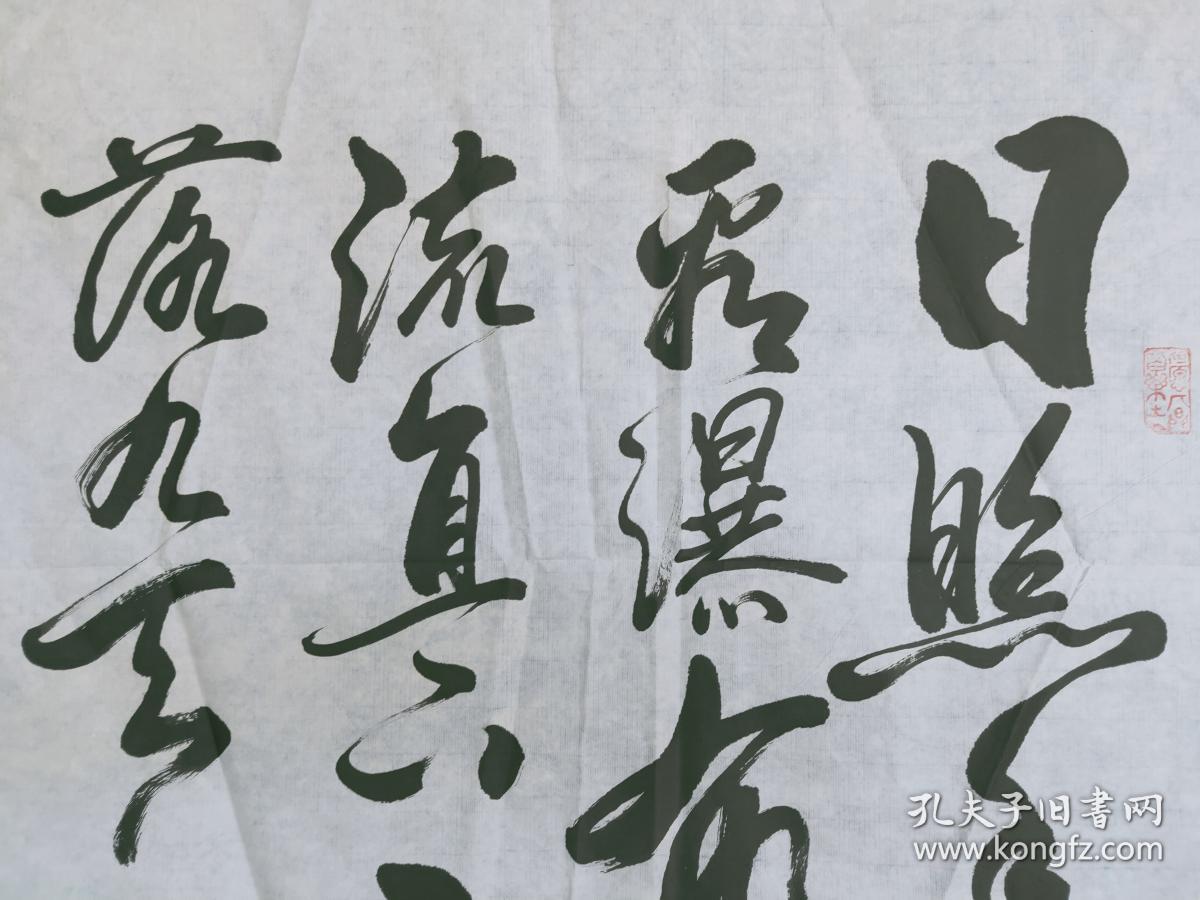 日照香
看瀑布
流直下
落九天
孔夫子旧书网
www.kongfz.com